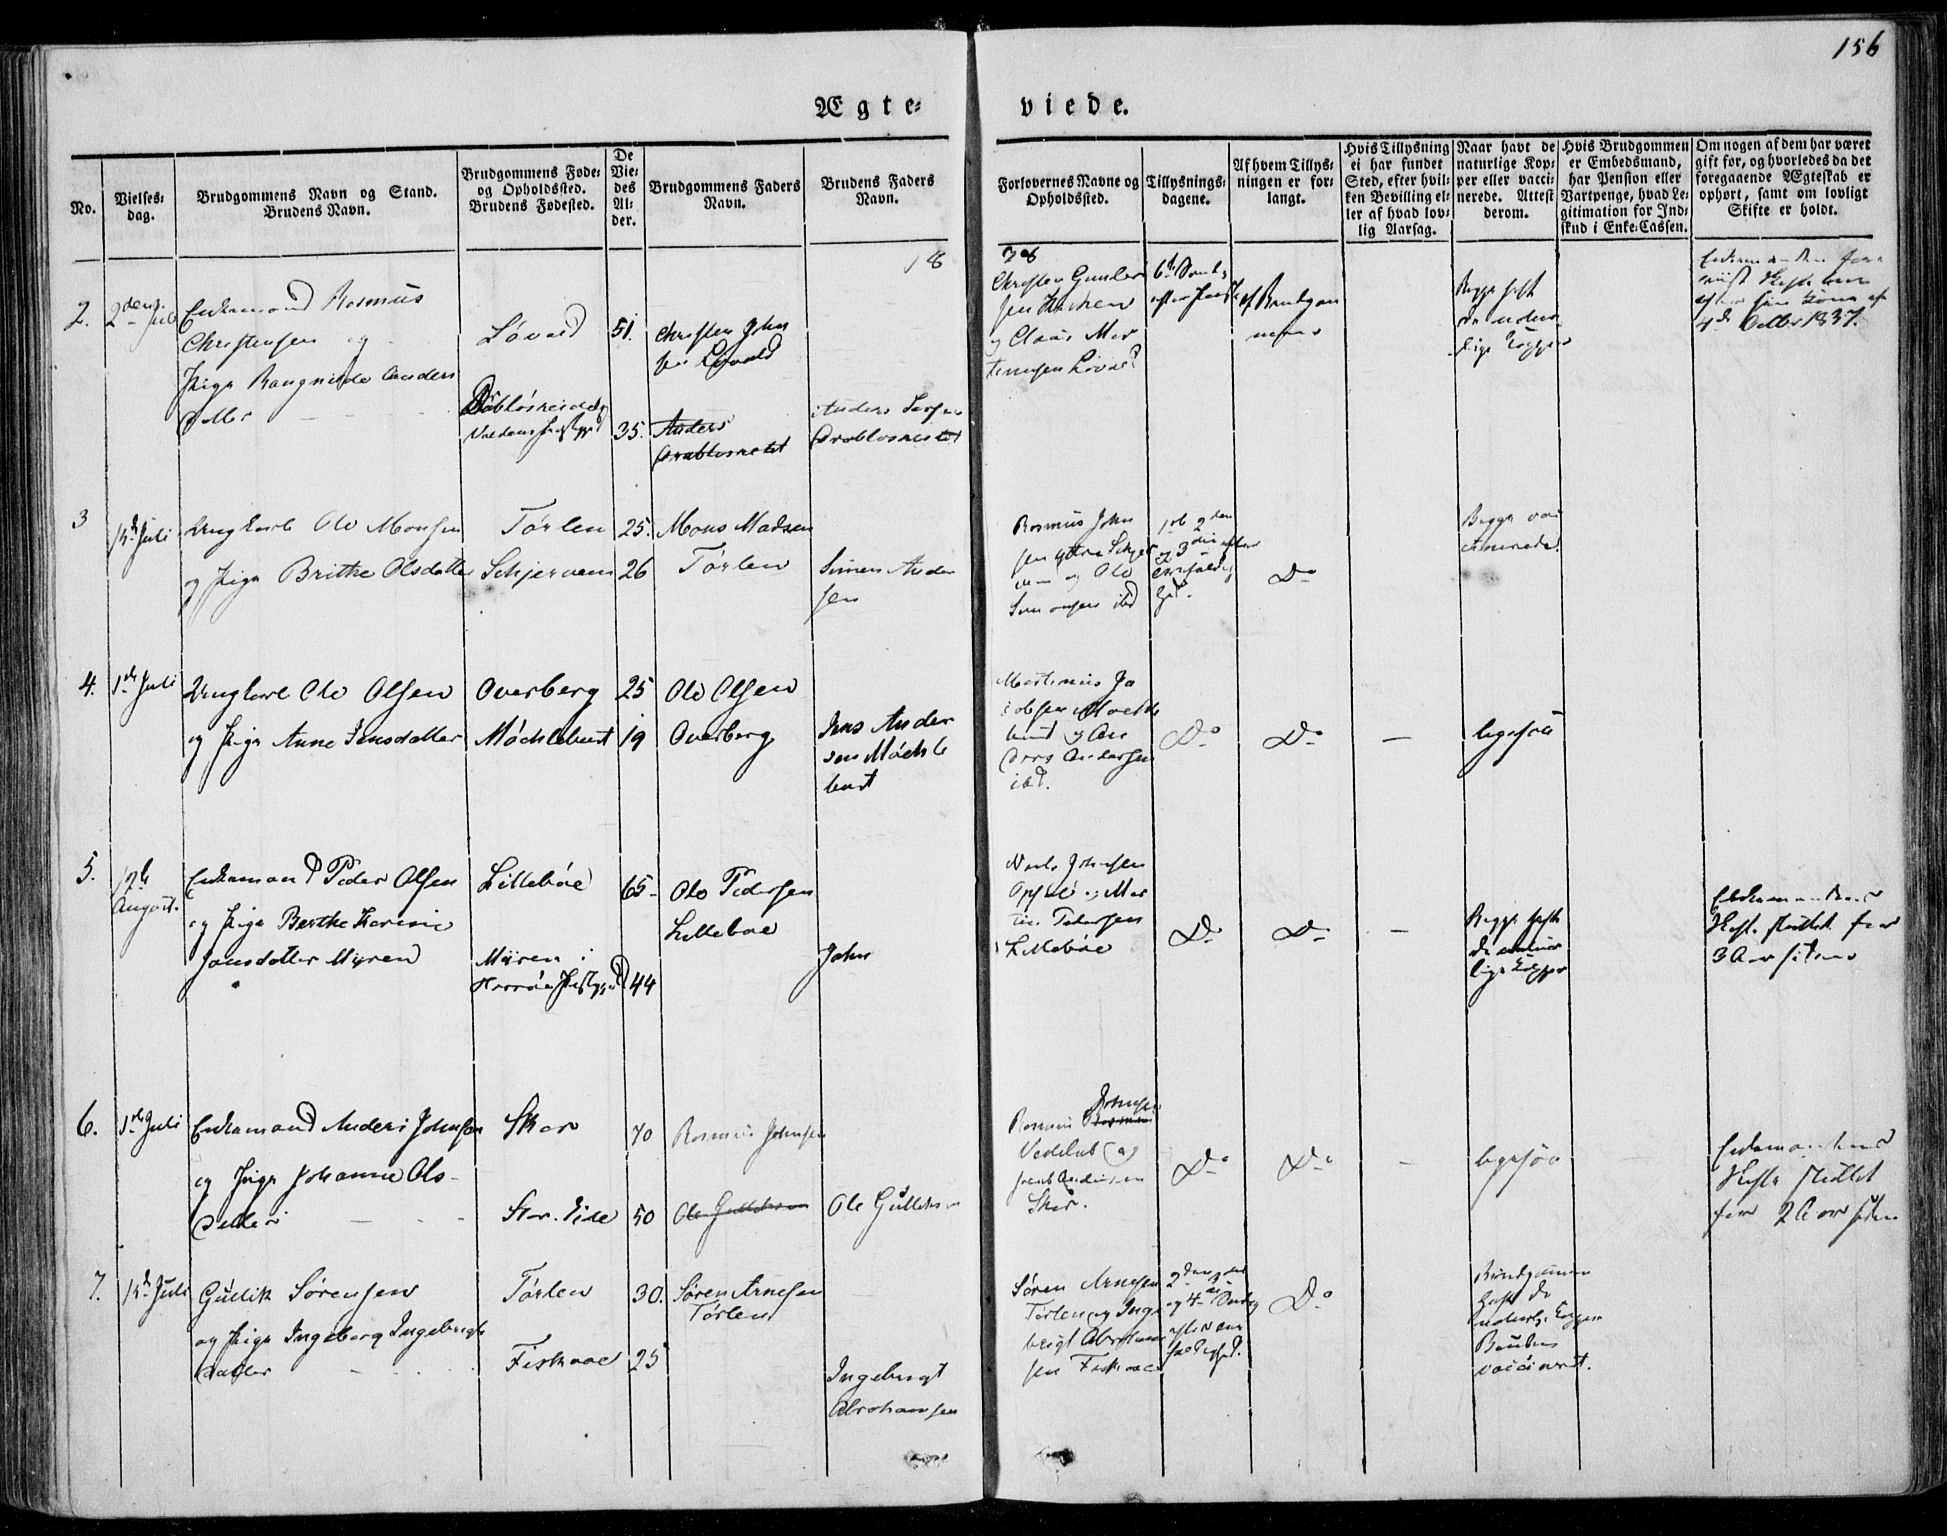 156
Ægte-
viede.
No.
Vielses-
dag.
Brudgommens Navn og Stand.
Brudens Navn.
Brudgommens Føde-
og Opholdssted.
Brudens Fødested.
De
Vie-
des
Al-
der.
Brudgommens Faders
Navn.
Brudens Faders
Navn.
Forlovernes Navne og
Opholdssted.
Tillysnings-
dagene.
Af hvem Tillys-
ningen er for-
langt.
Hvis Tillysning
ei har fundet
Sted, efter hvil-
ken Bevilling el-
ler af hvad lov-
lig Aarsag.
Naar havt de
naturlige Kop-
per eller vacci-
nerede. Attest
derom.
Hvis Brudgommen
er Embedsmand,
har Pension eller
Vartpenge, hvad Le-
gitimation for Ind-
skud i Enke-Cassen.
Om nogen af dem har været
gift før, og hvorledes da det
foregaaende Ægteskab er
ophørt, samt om lovligt
Skifte er holdt.
18
38
2.
2den Juli
Enkemand Rasmus
Christensen og
Pige Rangnilde Anders
datter
Løvad
51.
35.
Christen John
sen Løvad
Anders
Anders
Christen
og Claus Mor
tensen Løvad
6te
af Brudgom
men
Begge haft
de natur
lige Kopper
4de Octbr 1837.
3
15de Juli
Ungkarl Ole Monsen
og Pige Brithe Olsdatter
Tørlen
Schjerven
25.
26
Mons Madsen
Tørlen
Simen Ander
sen
Rasmus John
sen
og Ole
Simonsen ibd
2den
og 3die efter
Do
Begge vac
cinerede.
4.
1ste Juli
Ungkarl Ole Olsen
og Pige Anne Jensdatter
Overberg
Møchlebust
25
19
Ole Olsen
Overberg
Jens Ander
sen Møchle
bust
Martinus Ja
cobsen
bust og An
ders Andersen
ibd.
Do
Do
—
ligesaa
5.
12te
August.
Enkemand Peder Olsen
og Pige Berthe Karine
Jonsdatter Myren
Lillebøe
Myren i
65
44
Ole Pedersen
Lillebøe
John
Niels Johnsen
Opsal og Mar
tin Pedersen
Lillebøe
Do
Do
—
Begge haft
de natur
lige Kopper
Enkemandens
Skifte sluttet for
3 Aar siden
6.
1ste Juli
Enkemand Anders Johnsen
og Pige Johanne Ols-
datter
Skar
Stor-Eide
70
50
Rasmus Johnsen
Ole Gulliksen
Ole Gulliksen
Johnsen
Rasmus
Skar.
Do
Do
—
ligesaa
Enkemandens
Skifte sluttet
for 2 Aar siden
7.
15de Juli
Gullik Sørensen
og Pige Ingeborg Ingebrigts
datter
Tørlen
Fiskaae
30.
25
Søren Arnesen
Tørlen
Ingebrigt
Abrahamsen
Søren Arnesen
Tørlen og Inge
brigt Abraham
sen Fiskaae
2den
og 4de Søndag
efter
Do
Brudgommen
haft de
naturlige Kopper
Bruden
vaccineret.